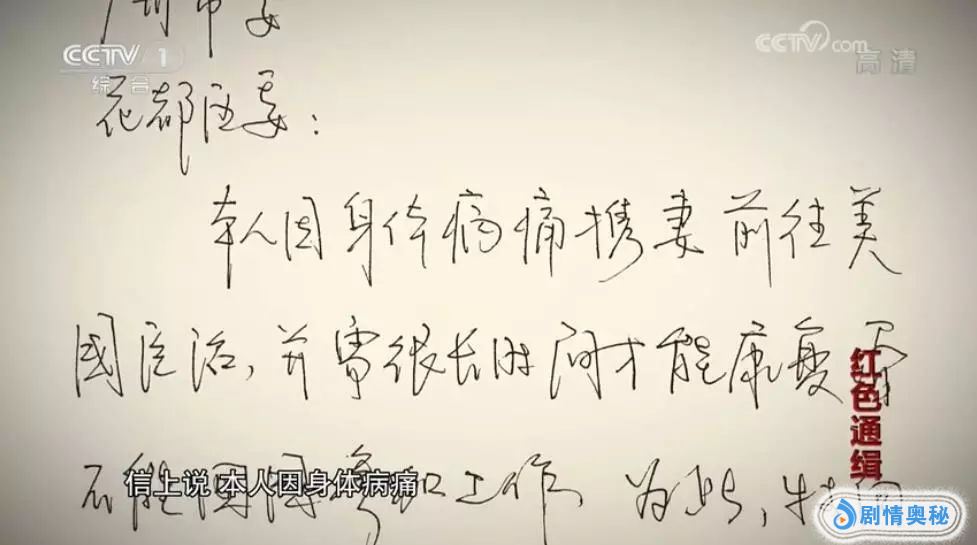 广州市委
CCTV 1
综合
CCTV.com
高清
花都区委：
本人因身体病痛携妻前往美
国医治，并需很长时间才能康复，
不能 工作，为此，特向
信上说 本人因身体病痛
红色通缉
剧情奥秘